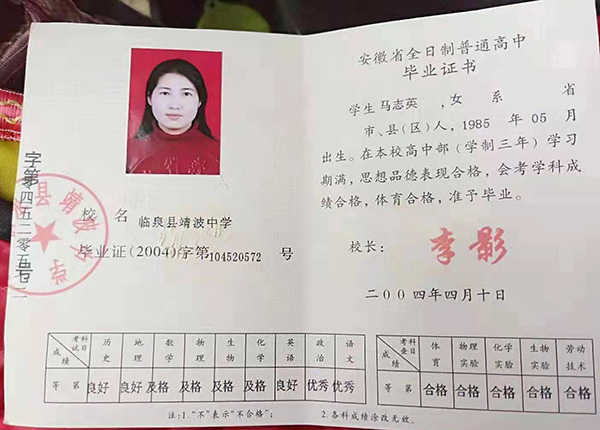 安徽省全日制普通高中
毕业证书
学生 马志英 ，女 系 省
市、县(区)人，1985 年 05 月
出生。在本校高中部(学制三年)学习
期满，思想品德表现合格，会考学科成
绩合格，体育合格，准予毕业。
校长： 李影
二00四年四月十日
校 名 临泉县靖波中学
毕业证(2004)字第104520572 号
字第
县靖波中学
考试科目 历史 地理 数学 物理 生物 化学 英语 政治 语文
成绩
等 第 良好 良好 及格 及格 及格 及格 良好 优秀 优秀
注:1."不"表示"不合格"；
2.各科成绩涂改无效。
考查科目 体育 物理实验 化学实验 生物实验 劳动技术
成绩
等 第 合格 合格 合格 合格 合格